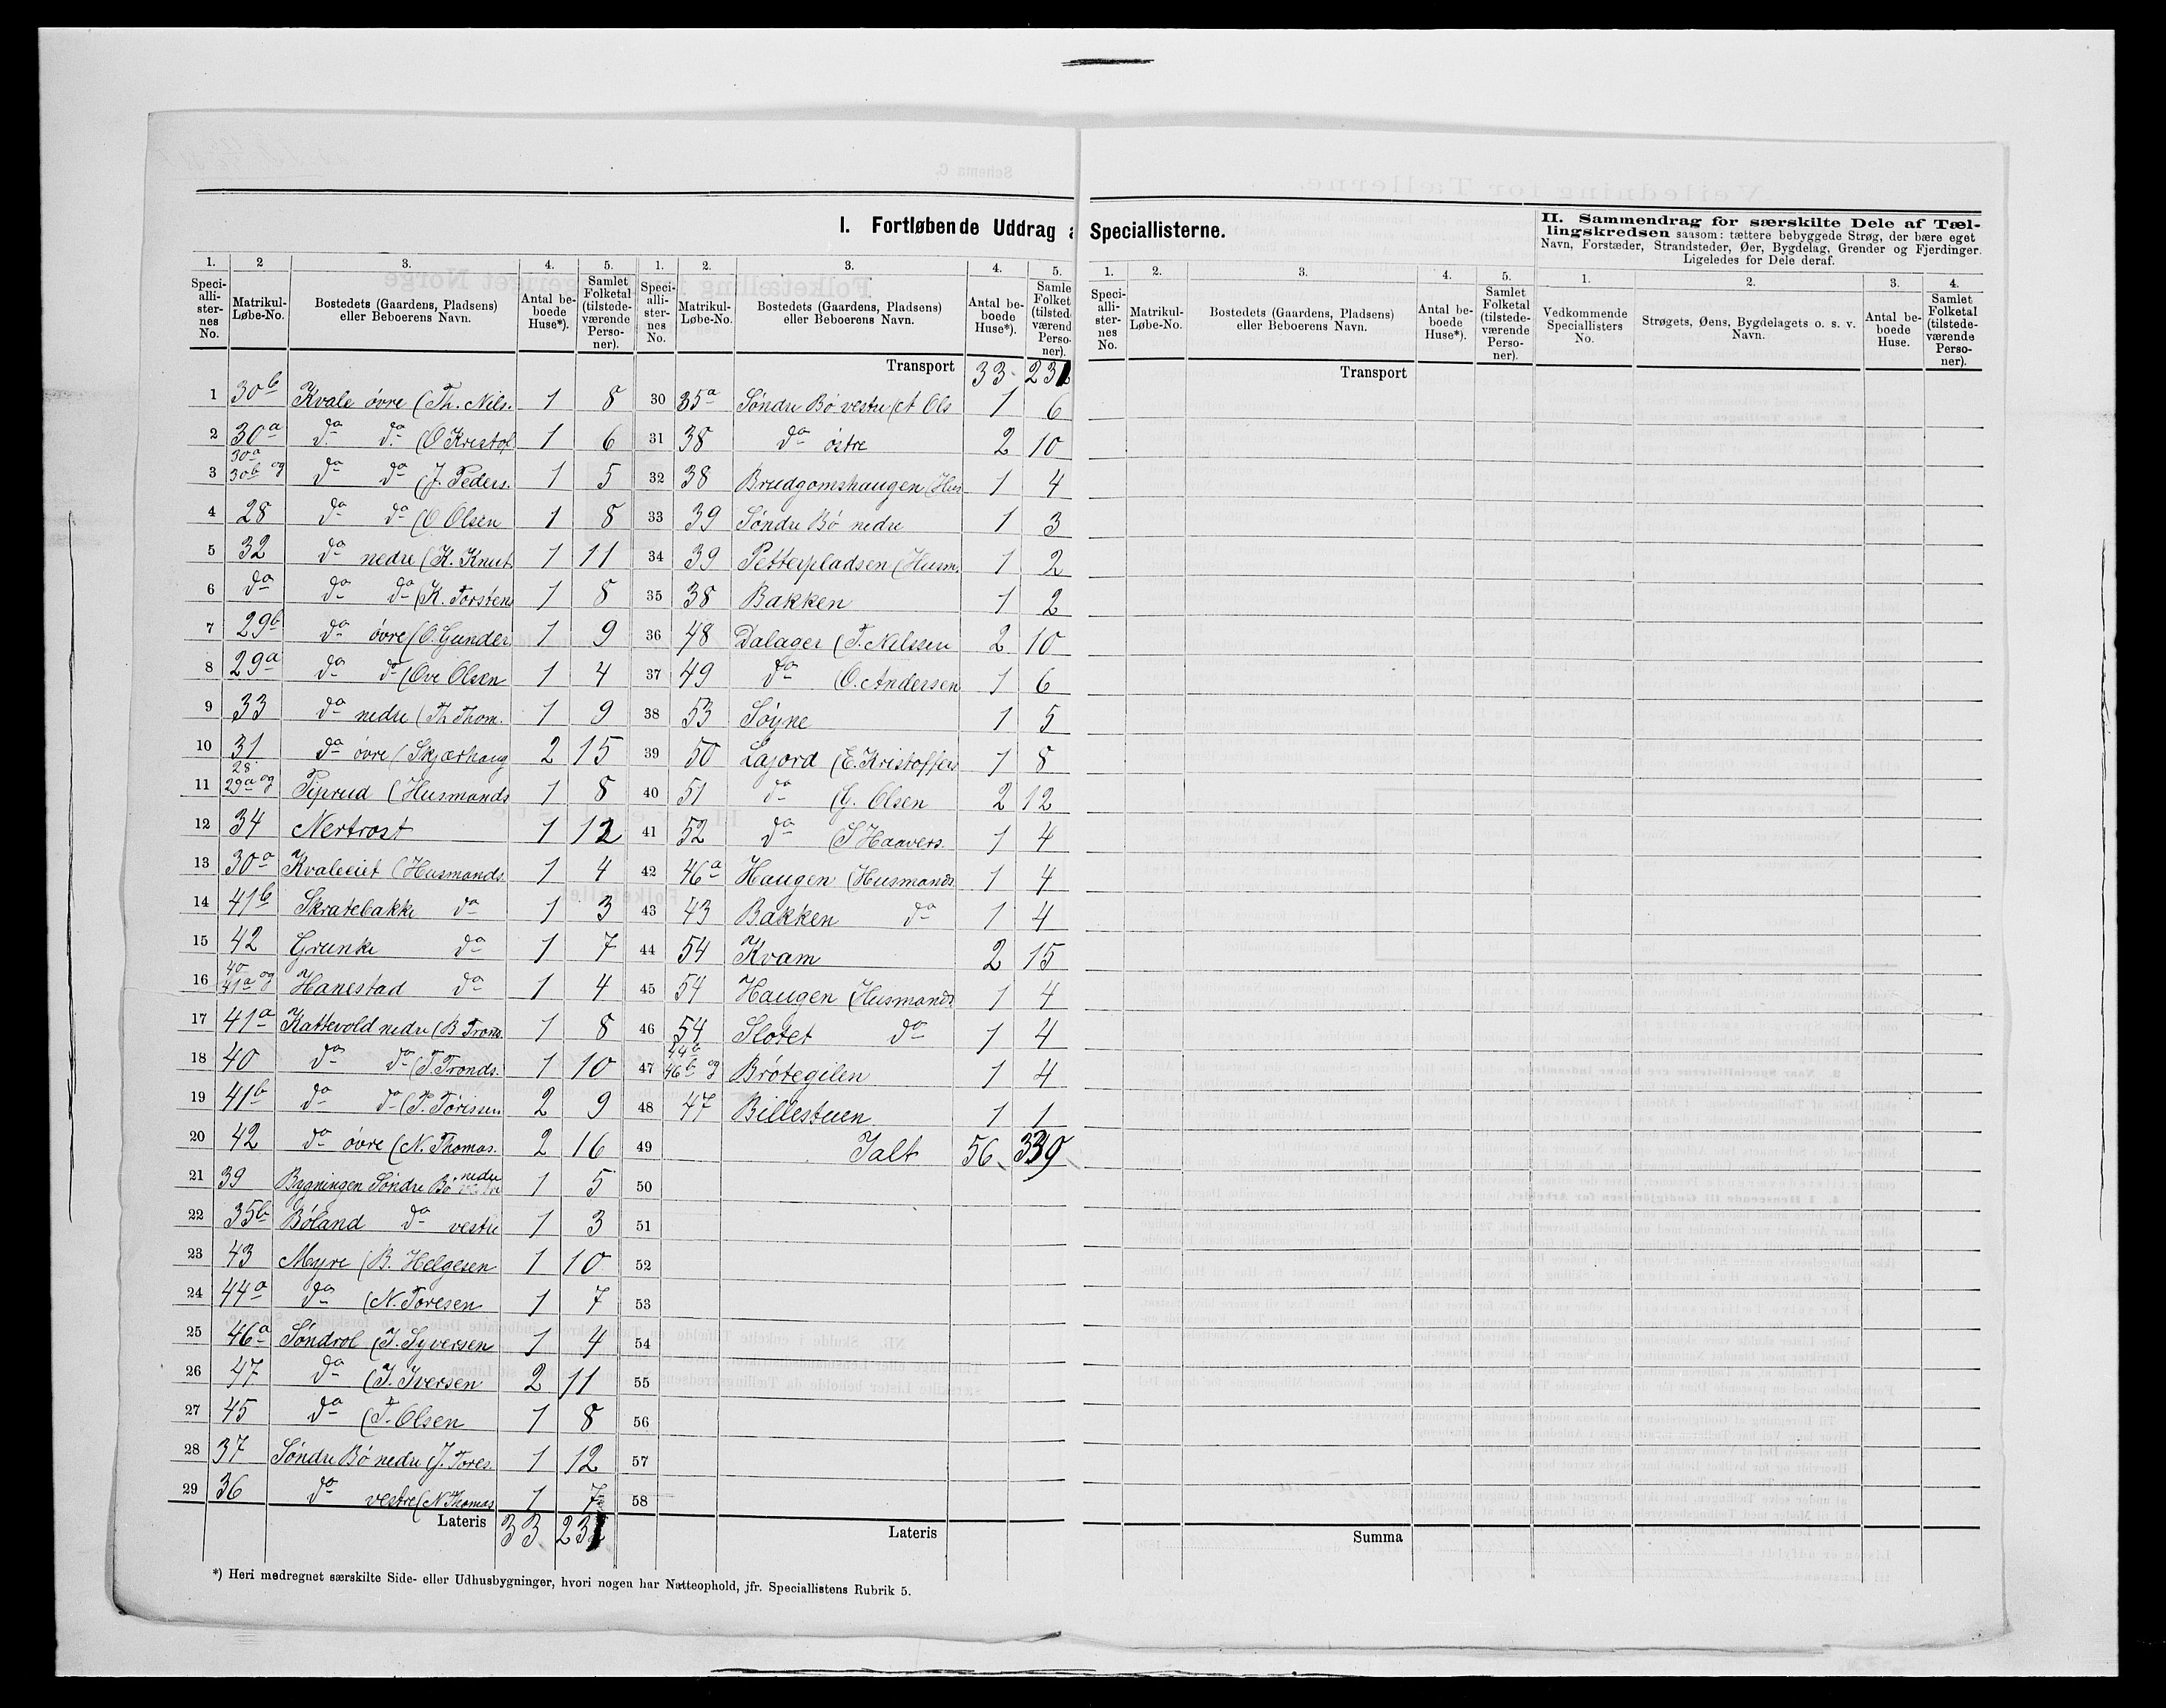 I. Fortløbende Uddrag a Speciallisterne.
II. Sammendrag for særskilte Dele af Tæl-
lingskredsen saasom: tættere bebyggede Strøg, der bære eget
Navn, Forstæder, Strandsteder, Øer, Bygdelag, Grender og Fjerdinger.
Ligeledes for Dele deraf.
1. 2 3. 4. 5. 1. 2. 3. 4. 5. 1. 2. 3. 4. 5. 1. 2. 3. 4.
Speci-alli-ster-nes No. Matrikul-Løbe-No. Bostedets (Gaardens, Pladsens) eller Beboerens Navn. Antal be-boede Huse*). Samlet Folketal (tilstede-værende Perso-ner).
Speci-alli-ster-nes No. Matrikul-Løbe-No. Bostedets (Gaardens, Pladsens) eller Beboerens Navn. Antal be-boede Huse*). Samle Folket (tilsted værend Perso ner).
Speci-alli-ster-nes No. Matrikul-Løbe-No. Bostedets (Gaardens, Pladsens) eller Beboerens Navn. Antal be-boede Huse*). Samlet Folketal (tilstede-værende Perso-ner).
Vedkommende Speciallisters No. Strøgets, Øens, Bygdelagets o. s. v. Navn. Antal be-boede Huse. Samlet Folketal (tilstede-værende Perso-ner).
1 30b Kvale øvre (Th. Nils. 1 8
2 30a do do (O Kristof 1 6
3 30a 30b og do do (J. Peders. 1 5
4 28 do do (O Olsen 1 8
5 32 do nedre (K. Knut 1 11
6 do do do (K. Torsten 1 8
7 29b do øvre (O. Gunder 1 9
8 29a do do (Ove Olsen 1 4
9 33 do nedre (Th Thom. 1 9
10 31 do øvre (Skjærhaug 2 15
11 28 29a og Piprud (Husmands 1 8
12 34 Nertrost 1 12
13 30a Kvaleeiet (Husmands. 1 4
14 41b Skratebakke do 1 3
15 42 Grunke do 1 7
16 40 41a og Hanestad do 1 4
17 41a Kattevold nedre (B. Trons. 1 8
18 40 do do (T. Tronds. 1 10
19 41b do do (P. Torissen 2 9
20 42 do øvre (N. Thomas. 2 16
21 39 Bygningen Søndre Bø nedre 1 5
22 35b Bøland do vestre 1 3
23 43 Møyre (B. Helgesen 1 10
24 44a do (N. Toresen 1 7
25 46a Søndrol (T. Syversen 1 4
26 47 do (I. Iversen 2 11
27 45 do (T. Olsen 1 8
28 37 Søndre Bø nedre (J. Tores. 1 12
29 36 do vestre (N Thomas 1 7
Lateris 33 231
Transport 33 231
30 35a Søndre Bø vestre (A Ols 1 6
31 38 do østre 2 10
32 38 Brudgomshaugen (Hus 1 4
33 39 Søndre Bø nedre 1 3
34 39 Petterpladsen (Husm. 1 2
35 38 Bakken 1 2
36 48 Dalager (T. Nilssen 2 10
37 49 do (O. Andersen 1 6
38 53 Søyne 1 5
39 50 Lajord (E. Kristoffers 1 8
40 51 do (G. Olsen 2 12
41 52 do (S Haavers. 1 4
42 46a Haugen (Husmands. 1 4
43 43 Bakken do 1 4
44 54 Kvam 2 15
45 54 Haugen (Husmands. 1 4
46 54 Slotet do 1 4
47 44b 46b og Brøtegilen 1 4
48 47 Billestuen 1 1
49 Ialt 56 339
50
51
52
53
54
55
56
57
58
Lateris
Transport
Summa
*) Heri medregnet særskilte Side- eller Udhusbygninger, hvori nogen har Natteophold, jfr. Speciallistens Rubrik 5.